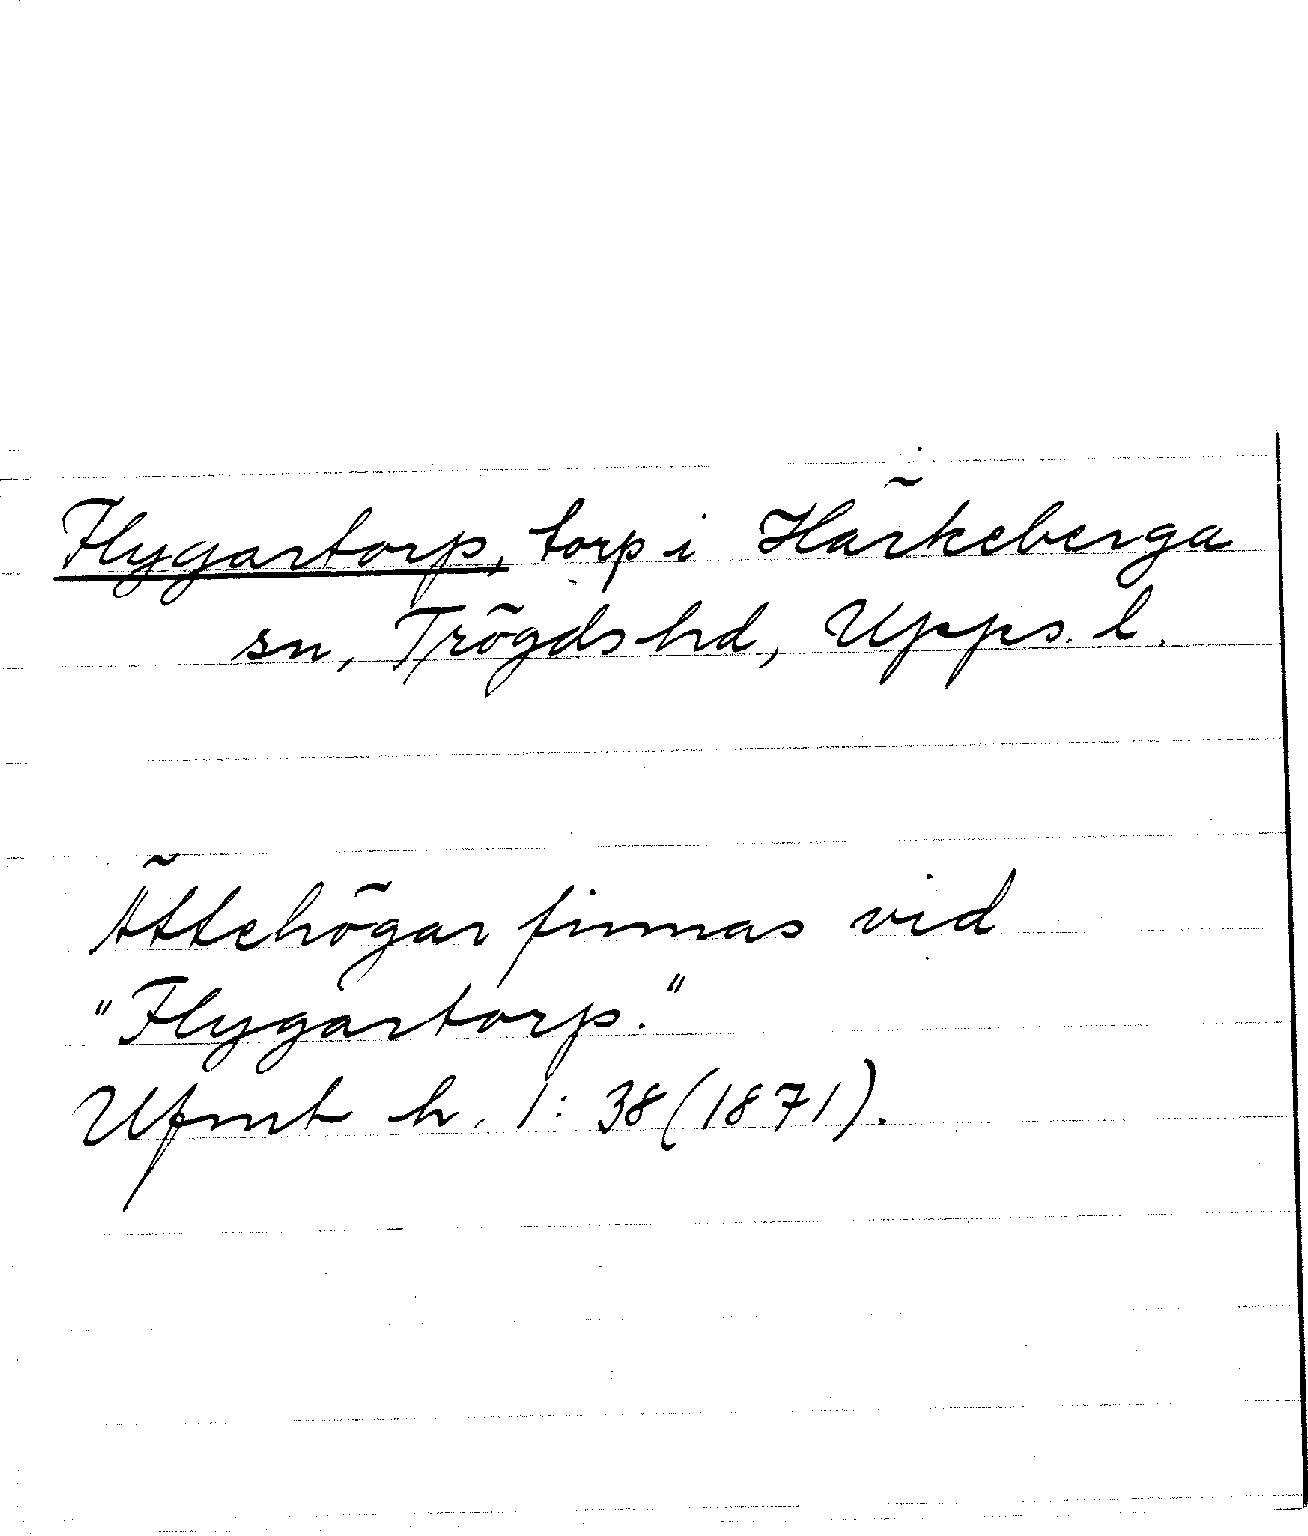 Flygartorp, torp i Härkeberga
sn, Trögds hd, Upps. l.
Ättehögar finnas vid
"Flygartorp."
Ufmt h. 1: 38 (1871).